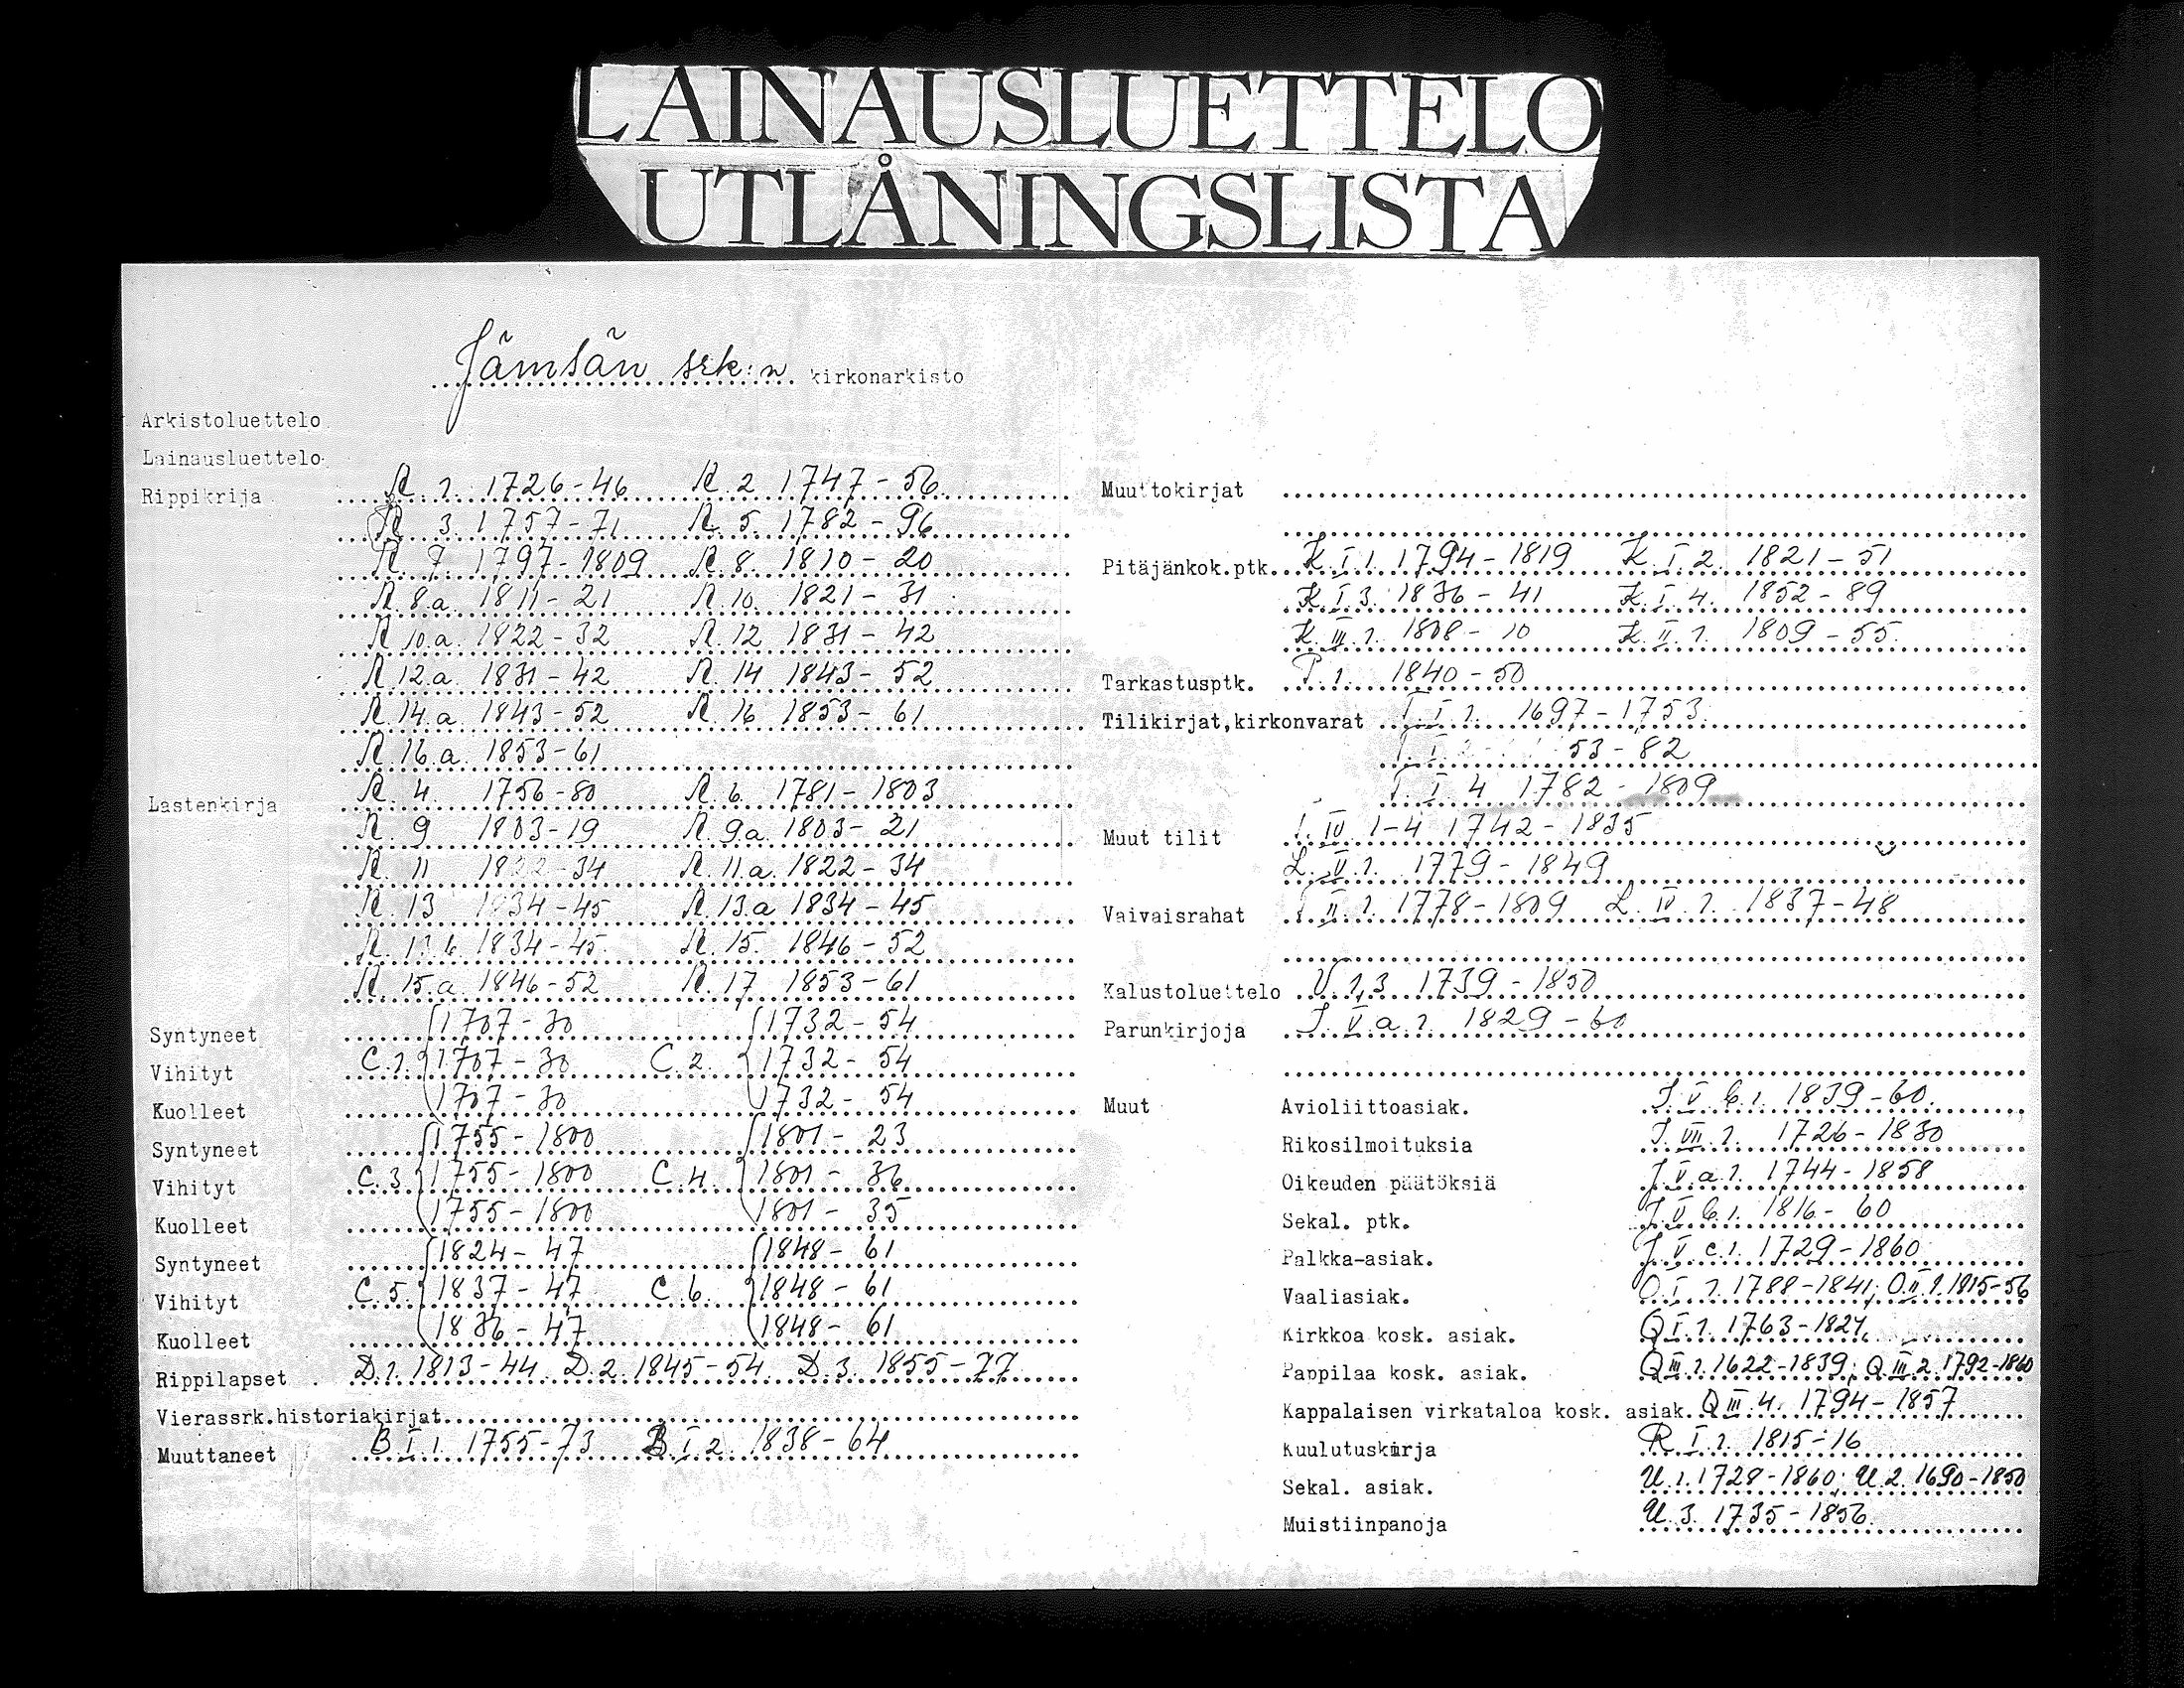 LAINAUSLUETTELO
UTLÅNINGSLISTA
Jämsän srk:n kirkonarkisto
Arkistoluettelo
Lainausluettelo
Rippikrija R. 1. 1726-46 R. 2 1747-56
R 3. 1757-71 R. 5. 1782-96
R. 7. 1797-1809 R. 8. 1810-20
R. 8.a. 1811-21 R. 10. 1821-31
R 10.a. 1822-32 R. 12 1831-42
R 12.a. 1831-42 R. 14 1843-52
R. 14.a. 1843-52 R. 16 1853-61
R. 16.a. 1853-61
Lastenkirja R. 4. 1756-80 R. 6. 1781-1803
R. 9 1803-19 R. 9.a. 1803-21
R. 11 1822-34 R. 11.a. 1822-34
R. 13 1834-45 R. 13.a 1834-45
R. 13.b. 1834-45. R. 15. 1846-52
R. 15.a. 1846-52 R. 17 1853-61
Syntyneet 1707-30 1732-54
Vihityt C.1. 1707-30 C.2. 1732-54
Kuolleet 1707-30 1732-54
Syntyneet 1755-1800 1801-23
Vihityt C.3. 1755-1800 C.4. 1801-36
Kuolleet 1755-1800 1801-35
Syntyneet 1824-47 1848-61
Vihityt C.5. 1837-47 C.6. 1848-61
Kuolleet 1836-47 1848-61
Rippilapset D.1. 1813-44 D.2. 1845-54 D.3. 1855-77
Vierassrk.historiakirjat
Muuttaneet B I 1. 1755-73 B I 2. 1838-64
Muuttokirjat
Pitäjänkok.ptk. K. I. 1. 1794-1819 K. I. 2. 1821-51
K. I. 3. 1836-41 K. I. 4. 1852-89
K. III. 1. 1808-10 K. II. 1. 1809-55.
Tarkastusptk. P. 1. 1840-50
Tilikirjat,kirkonvarat I. 1. 1697-1753.
53-82
I. 4 1782-1809
Muut tilit IV. 1-4 1742-1835
L. V. 1. 1779-1849
Vaivaisrahat II. 1. 1778-1809 L. IV. 1. 1837-48
Kalustoluettelo V. 1,3 1739-1850
Parunkirjoja J. V. a. 1. 1829-60
Muut Avioliittoasiak. J. V b. 1. 1839-60.
Rikosilmoituksia J. VII. 1. 1726-1830
Oikeuden päätöksiä J. V. a. 1. 1744-1858
Sekal. ptk. J V b. 1. 1816-60
Palkka-asiak. J. V c. 1. 1729-1860
Vaaliasiak. O. I. 1. 1788-1841; O. II. 1. 1815-56
Kirkkoa kosk. asiak. Q I. 1. 1763-1827.
Pappilaa kosk. asiak. Q III. 1. 1622-1839; Q III. 2. 1792-1860
Kappalaisen virkataloa kosk. asiak. Q III. 4. 1794-1857
Kuulutuskirja R. I. 1. 1815-16
Sekal. asiak. U. 1. 1728-1860; U. 2. 1690-1850
Muistiinpanoja U. 3. 1735-1856.